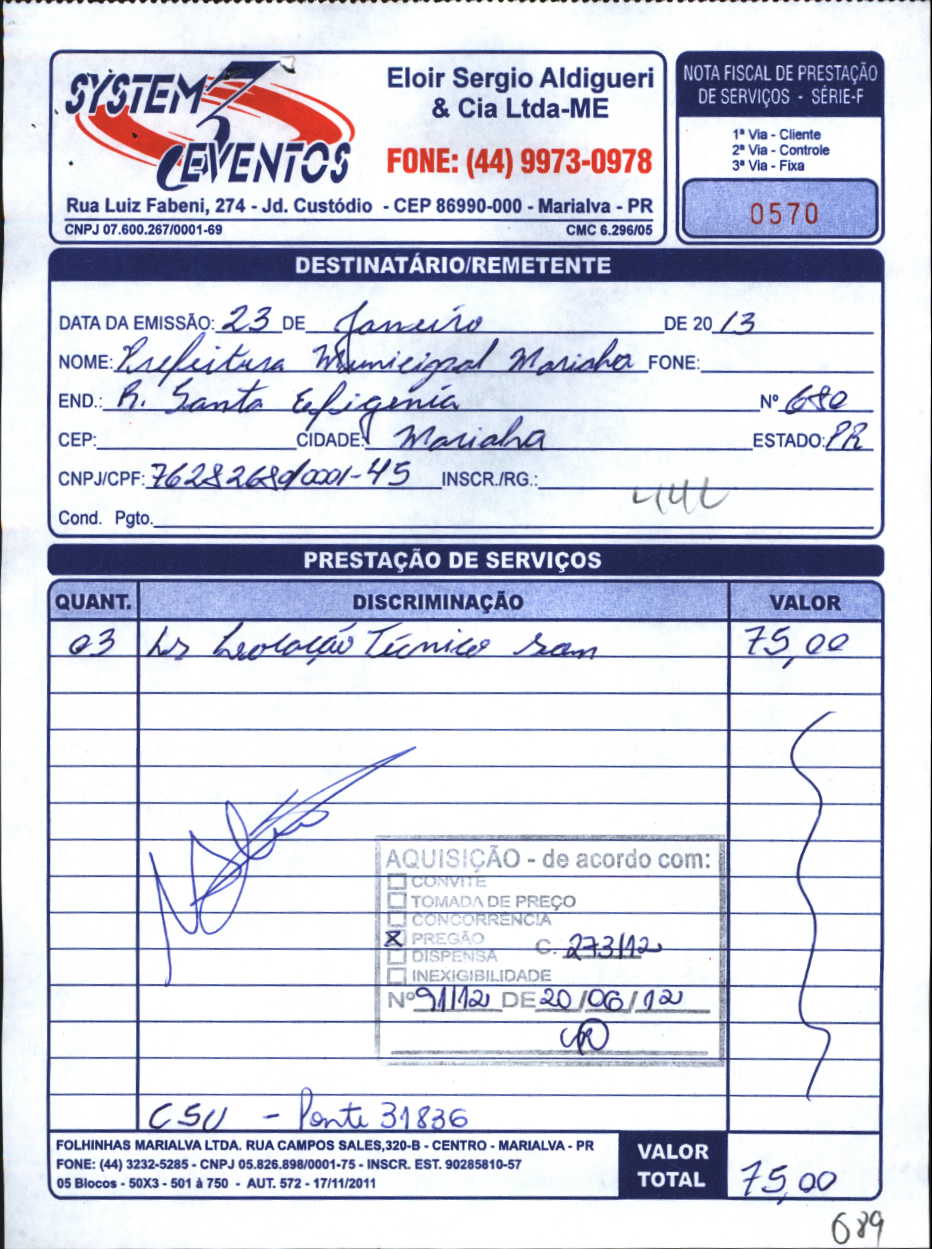 SYSTEM 3 EVENTOS
Eloir Sergio Aldigueri
& Cia Ltda-ME
FONE: (44) 9973-0978
Rua Luiz Fabeni, 274 - Jd. Custódio - CEP 86990-000 - Marialva - PR
CNPJ 07.600.267/0001-69 CMC 6.296/05
NOTA FISCAL DE PRESTAÇÃO
DE SERVIÇOS - SÉRIE-F
1ª Via - Cliente
2ª Via - Controle
3ª Via - Fixa
0570
DESTINATÁRIO/REMETENTE
DATA DA EMISSÃO: 23 DE Janeiro DE 2013
NOME: Prefeitura Municipal Marialva FONE:
END.: R. Santa Efigenia Nº 680
CEP: CIDADE: Marialva ESTADO: PR
CNPJ/CPF: 76282680/0001-45 INSCR./RG.:
Cond. Pgto.
PRESTAÇÃO DE SERVIÇOS
QUANT. DISCRIMINAÇÃO VALOR
03 Técnico 75,00
AQUISIÇÃO - de acordo com:
CONVITE
TOMADA DE PREÇO
CONCORRÊNCIA
X PREGÃO C. 273/12
DISPENSA
INEXIGIBILIDADE
Nº 91/12 DE 20/06/12
CSU - Ponte 31836
FOLHINHAS MARIALVA LTDA. RUA CAMPOS SALES,320-B - CENTRO - MARIALVA - PR
FONE: (44) 3232-5285 - CNPJ 05.826.898/0001-75 - INSCR. EST. 90285810-57
05 Blocos - 50X3 - 501 à 750 - AUT. 572 - 17/11/2011
VALOR
TOTAL 75,00
689